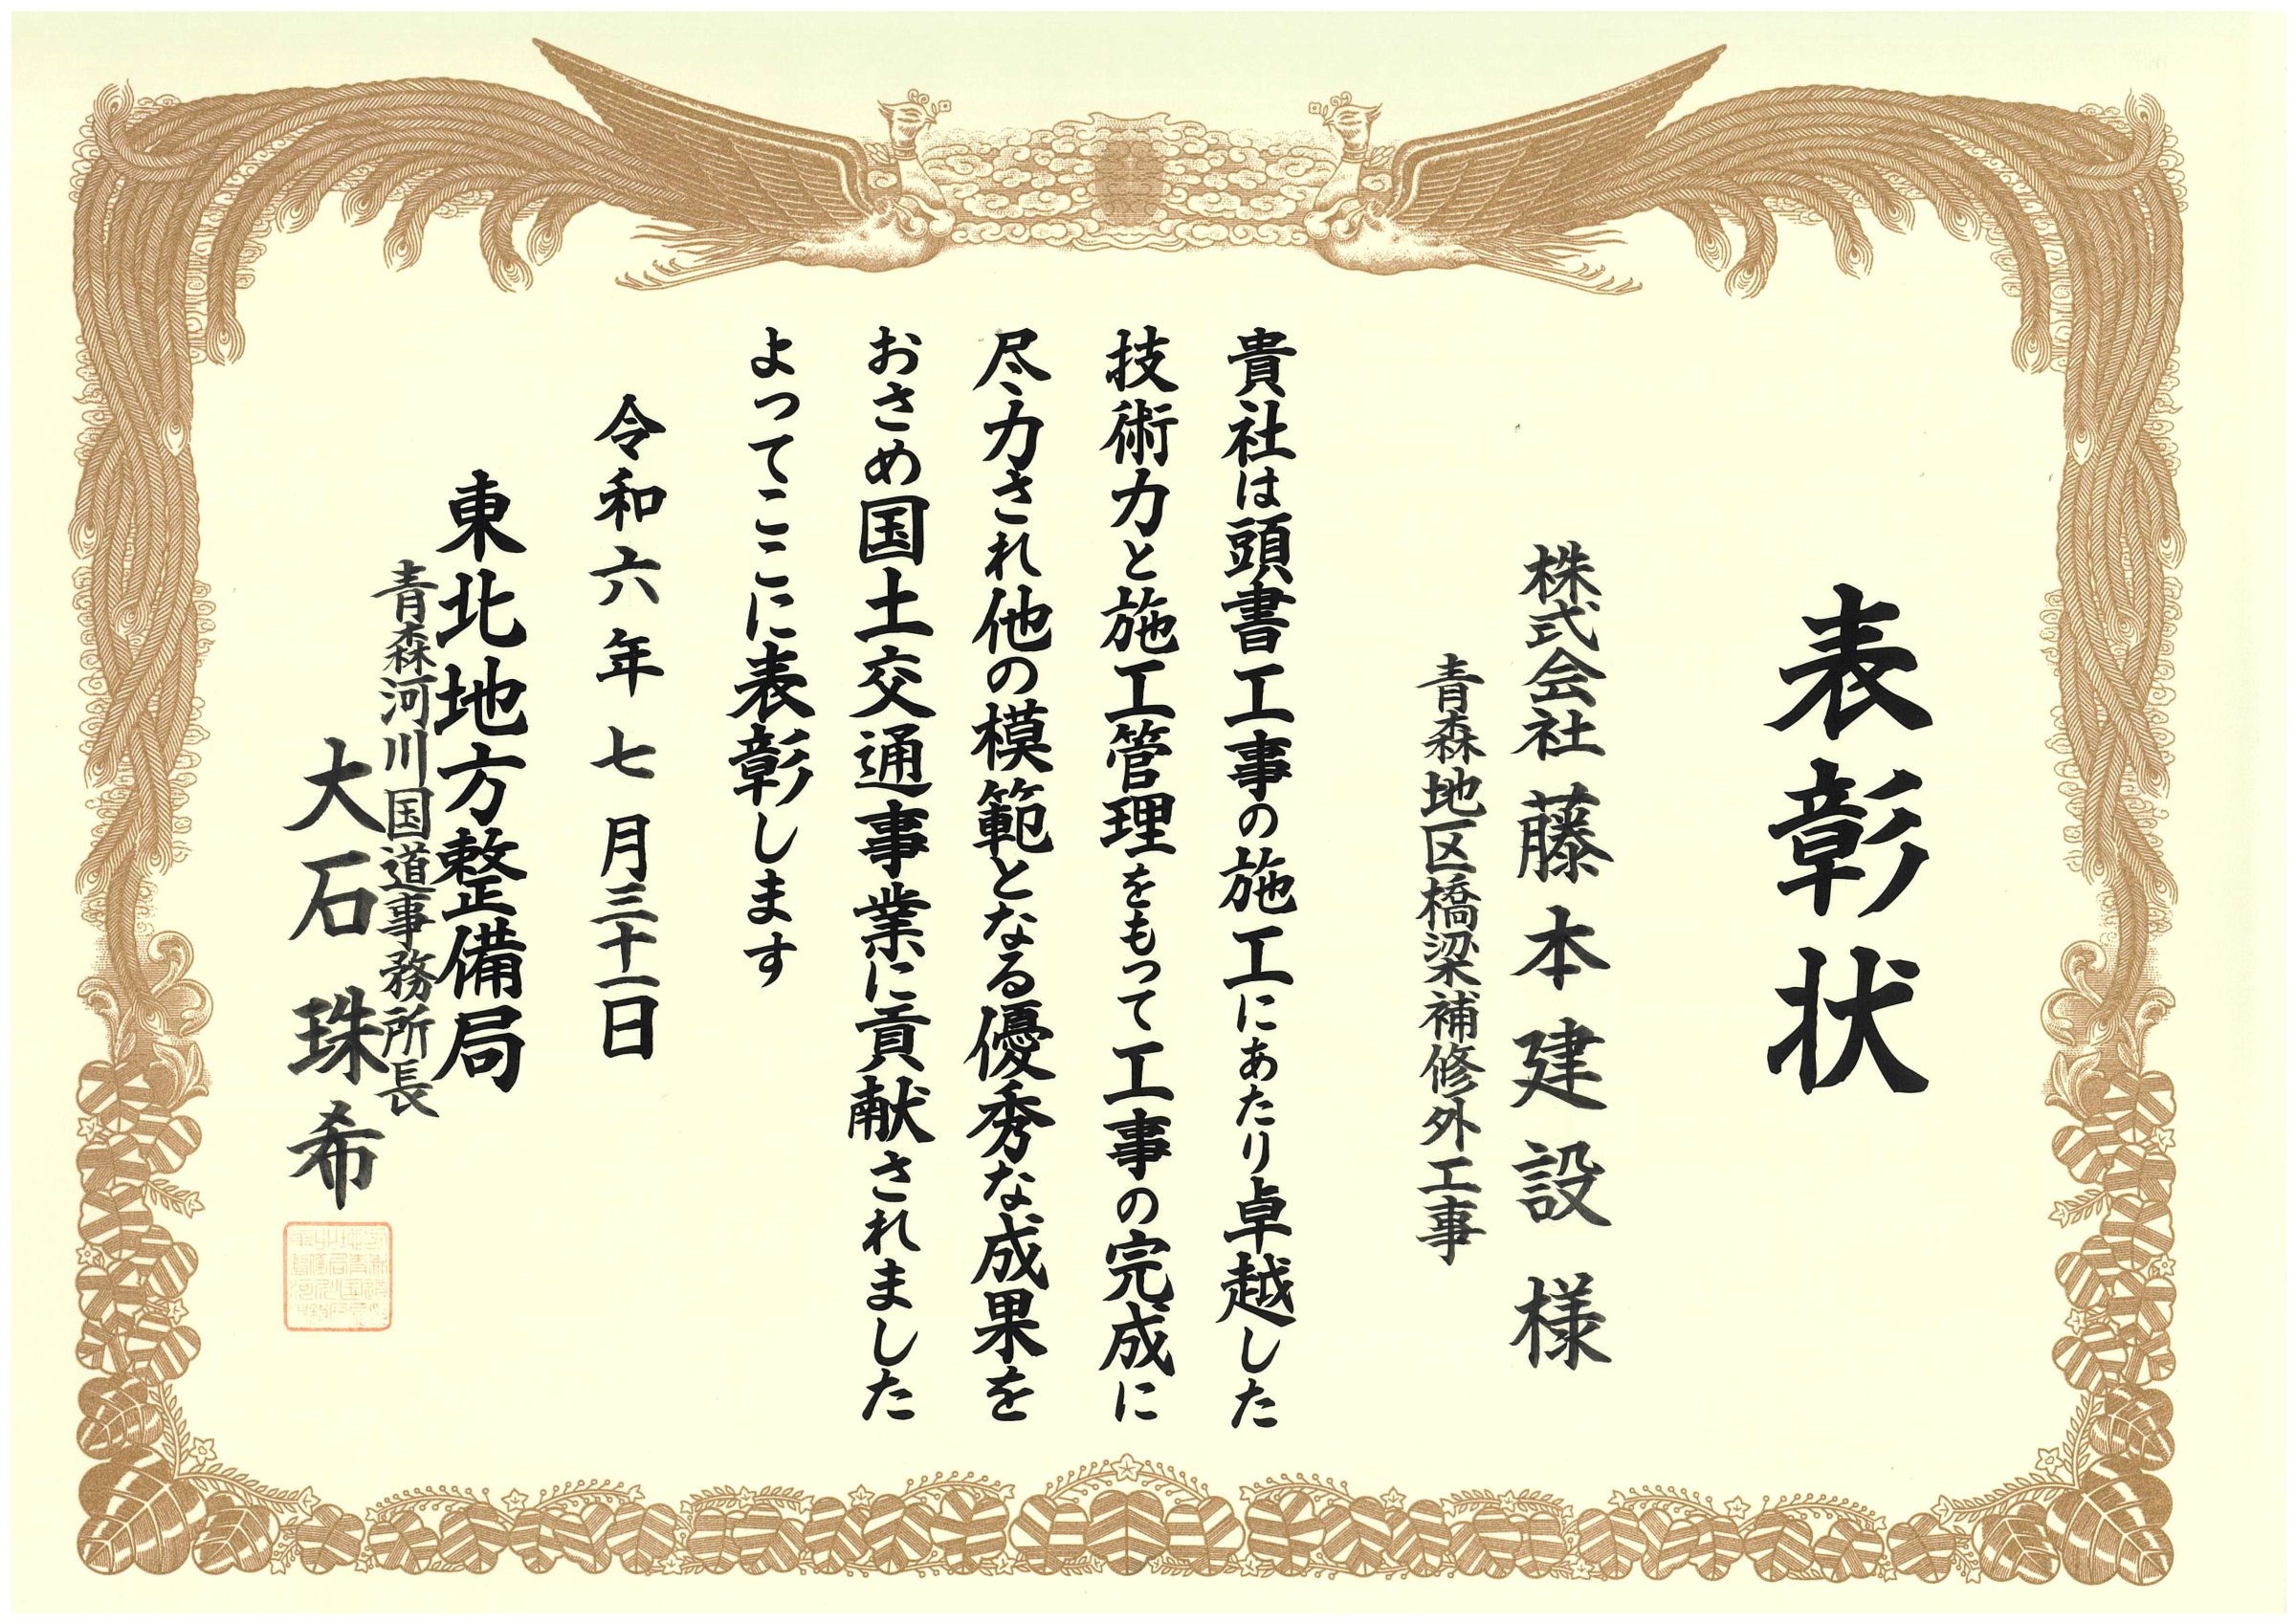 表彰状
株式会社 藤本建設 様
青森地区橋梁補修外工事
貴社は頭書工事の施工にあたり卓越した
技術力と施工管理をもって工事の完成に
尽力され他の模範となる優秀な成果を
おさめ国土交通事業に貢献されました
よってここに表彰します
令和六年七月三十一日
東北地方整備局
青森河川国道事務所長
大石珠希